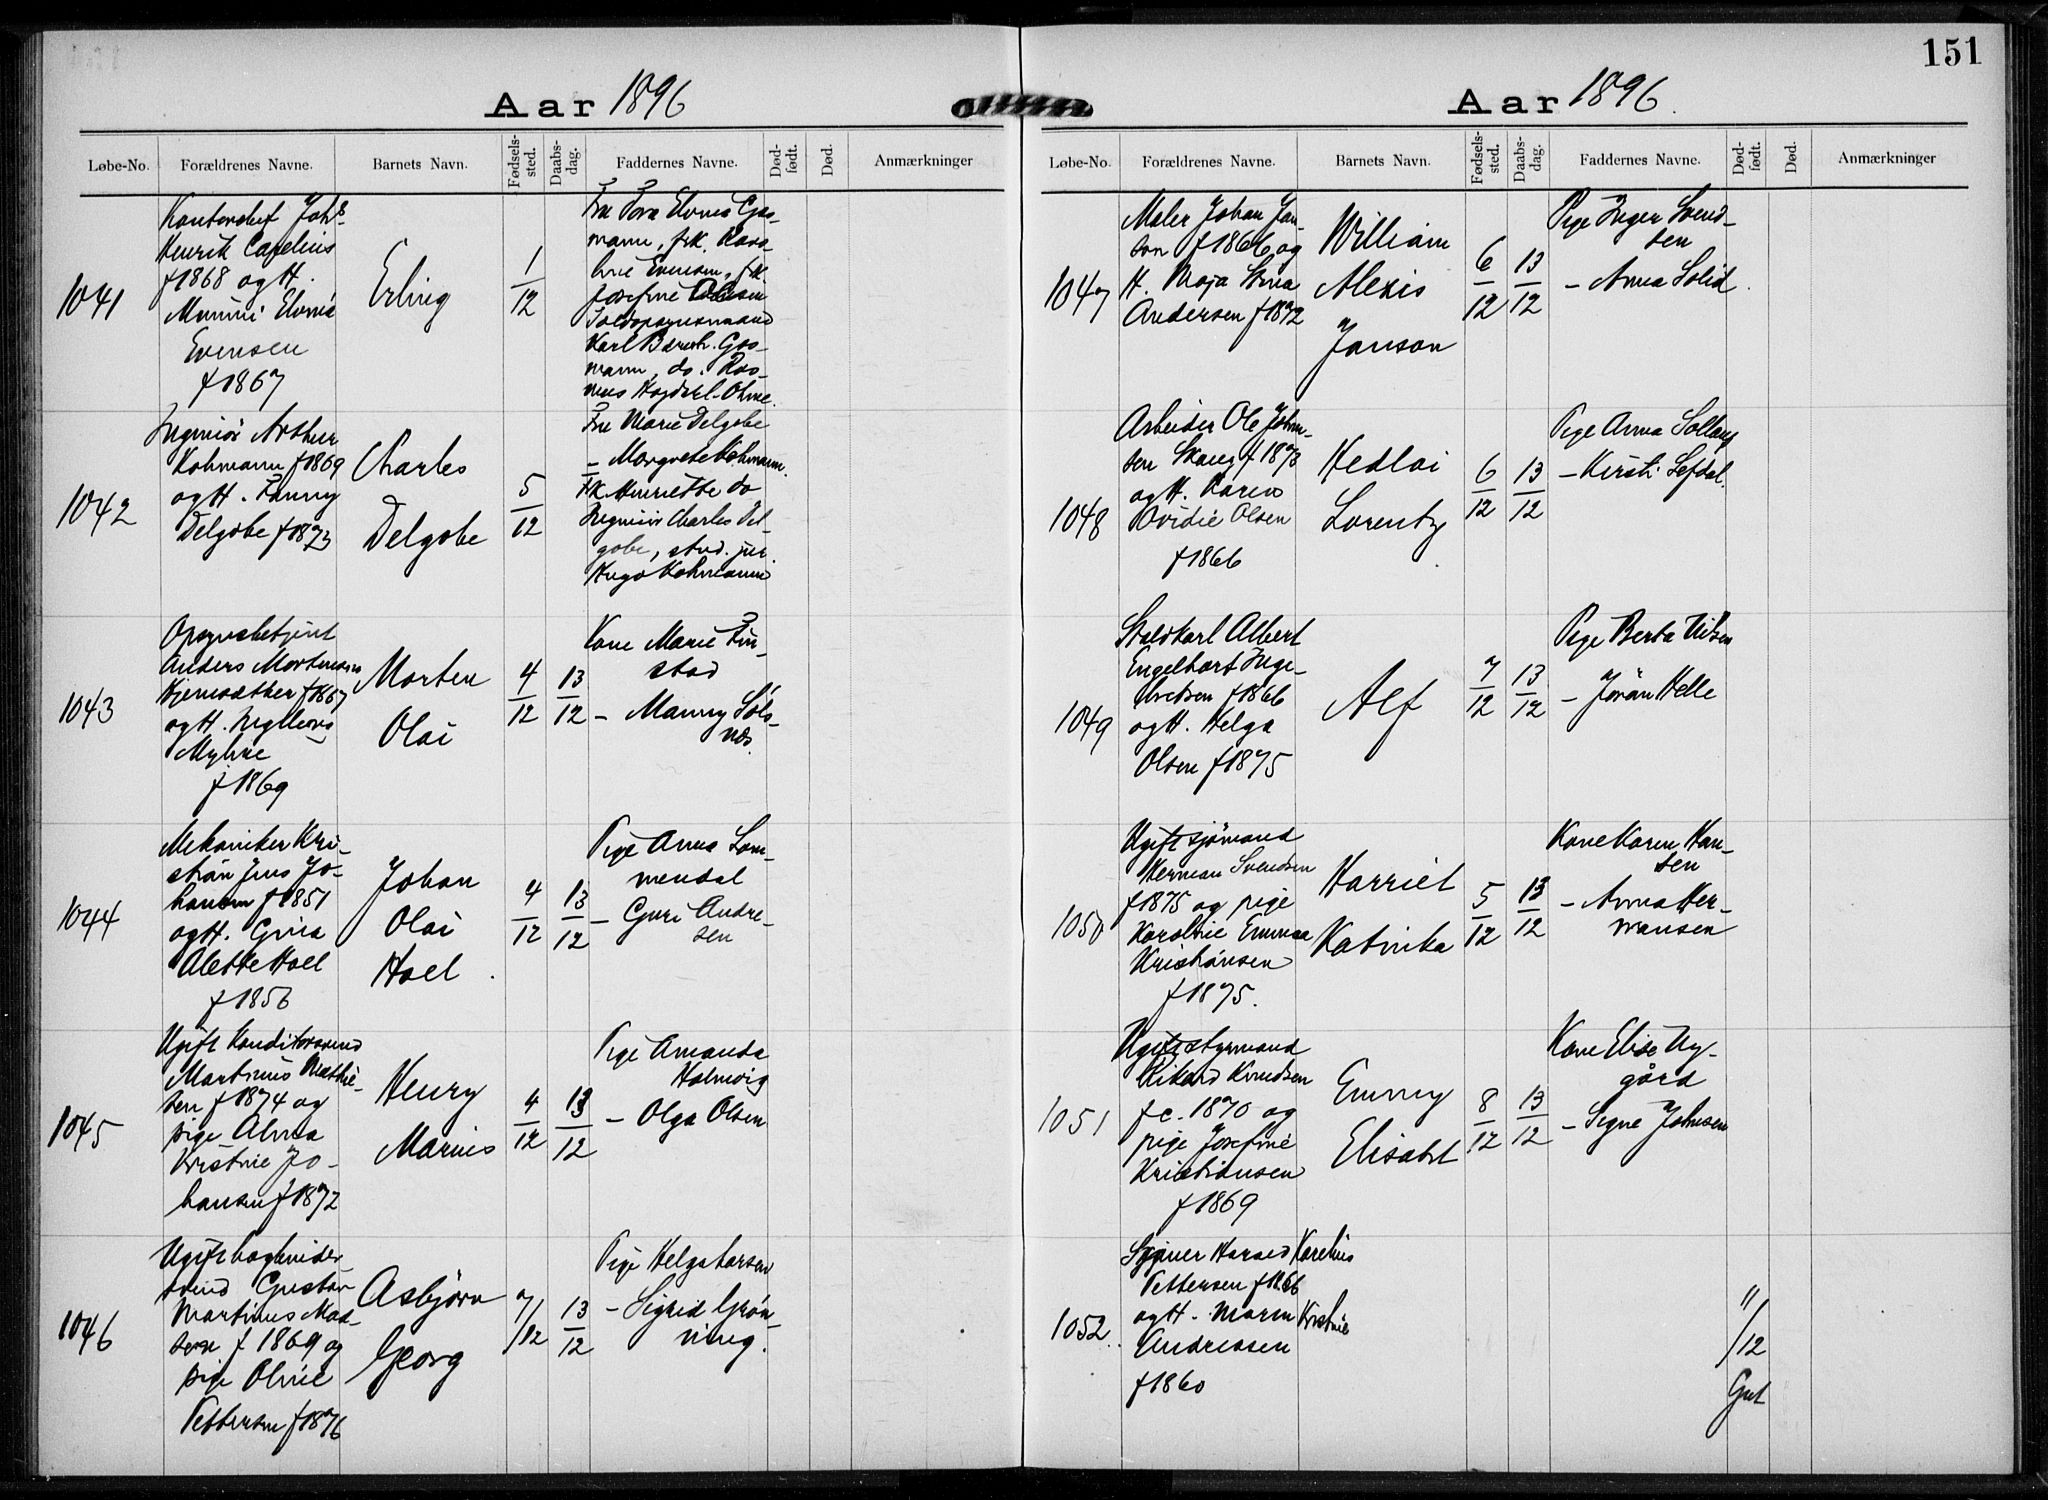 151
Aar 1896
Løbe-No. Forældrenes Navne. Barnets Navn. Fødsels-sted. Daabs-dag. Faddernes Navne. Død-født. Død. Anmærkninger
1041
Kontorchef Johs
Henrik Capelius
f 1868 og H.
Mimmi Elvina
Evensen
f 1867
Erling
1/12
Fru Tora Elvina Gos-
mann, frk.
Evensen, frk.
Josefine
Karl Bernh. Gos-
mann, do. Ras-
mus
1042
Ingeniör Arthur
Kohmann f 1869
og H. Fanny
Delgobe f 1873
Charles
Delgobe
5/12
Fru Marie Delgobe
— Margrete Kohmann.
Frk Henriette do
Ingeniör Charles Del-
gobe, stud. jur.
Hugo Kohmann
1043
Opsynsbetjent
Anders Mortensen
f 1867
og H. Ingeborg
Myhre
f 1869
Morten
Olai
4/12 13/12
Kone Marie Fin-
stad
— Manny Söls-
næs
1044
Mekaniker Kri-
stian Jens Jo-
hansen f 1851
og H. Gina
Alette Hoel
f 1856
Johan
Olai
Hoel.
4/12 13/12
Pige Anna Lom-
mendal
— Guri Andre-
sen
1045
Ugift Konditorsvend
Martinus Mathie-
sen f 1874 og
pige Alma
Kristine Jo-
hansen f 1872
Henry
Marius
4/12 13/12
Pige Amanda
Holmvig
— Olga Olsen
1046
Ugift bogbinder
svend Gustav
Martinus Mad-
sen f 1869 og
pige Oline
Pettersen f 1876
Asbjörn
Georg
7/12 13/12
Pige Helga Larsen
— Sigrid Grön-
ning.
Aar 1896.
Løbe-No. Forældrenes Navne. Barnets Navn. Fødsels-sted. Daabs-dag. Faddernes Navne. Død-født. Død. Anmærkninger
1047
Maler Johan Jan-
son f 1866 og
H. Maja Stina
Andersen f 1872
William
Alexis
Janson
6/12 13/12
Pige Inger Svend-
sen
— Anna Solid.
1048
Arbeider Ole Johan-
sen Skaug f 1873
og H. Karen
Ovidie Olsen
f 1866
Hedlai
Lorentz
6/12 13/12
Pige Anna Solberg
— Kirsti Lefdal.
1049
Staldkarl Albert
Engelhart Inge-
bretsen f 1866
og H. Helga
Olsen f 1875
Alf
7/12 13/12
Pige Berta Nilsen
— Jöran Helle
1050
Ugift sjömand
Herman Svendsen
f 1875 og pige
Karoline Emma
Kristiansen
f 1875.
Harriet
Katinka
5/12 13/12
Kone Karen Han-
sen
— Anna Her-
mansen
1051
Ugift styrmand
Rikard Knudsen
f c. 1870 og
pige Josefine
Kristiansen
f 1869
Emmy
Elisabet
8/12 13/12
Kone Elise Ny-
gård
— Signe Johnsen
1052.
Harald Karelius
Pettersen f 1866
og H. Maren Kristine
Andreassen
f 1860
11/12
Gut